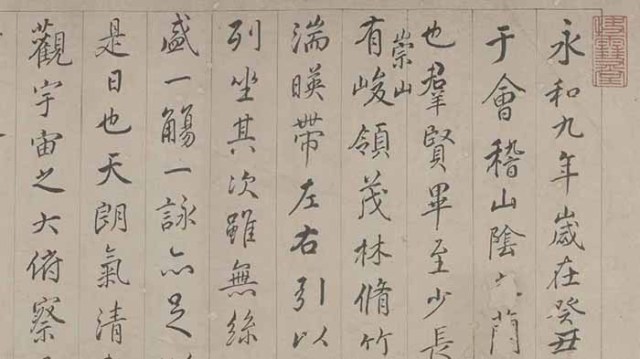 永和九年歲在癸丑
于會稽山陰蘭
也羣賢畢至少長
有崇山峻領茂林脩竹
湍暎帶左右引以
列坐其次雖無絲
盛一觴一詠亦足
是日也天朗氣清
觀宇宙之大俯察